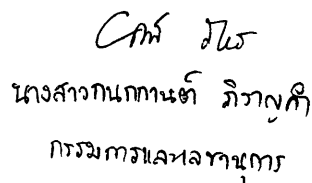 นางสาวกนกกานต์ ภิราญคำ
กรรมการและเลขานุการ